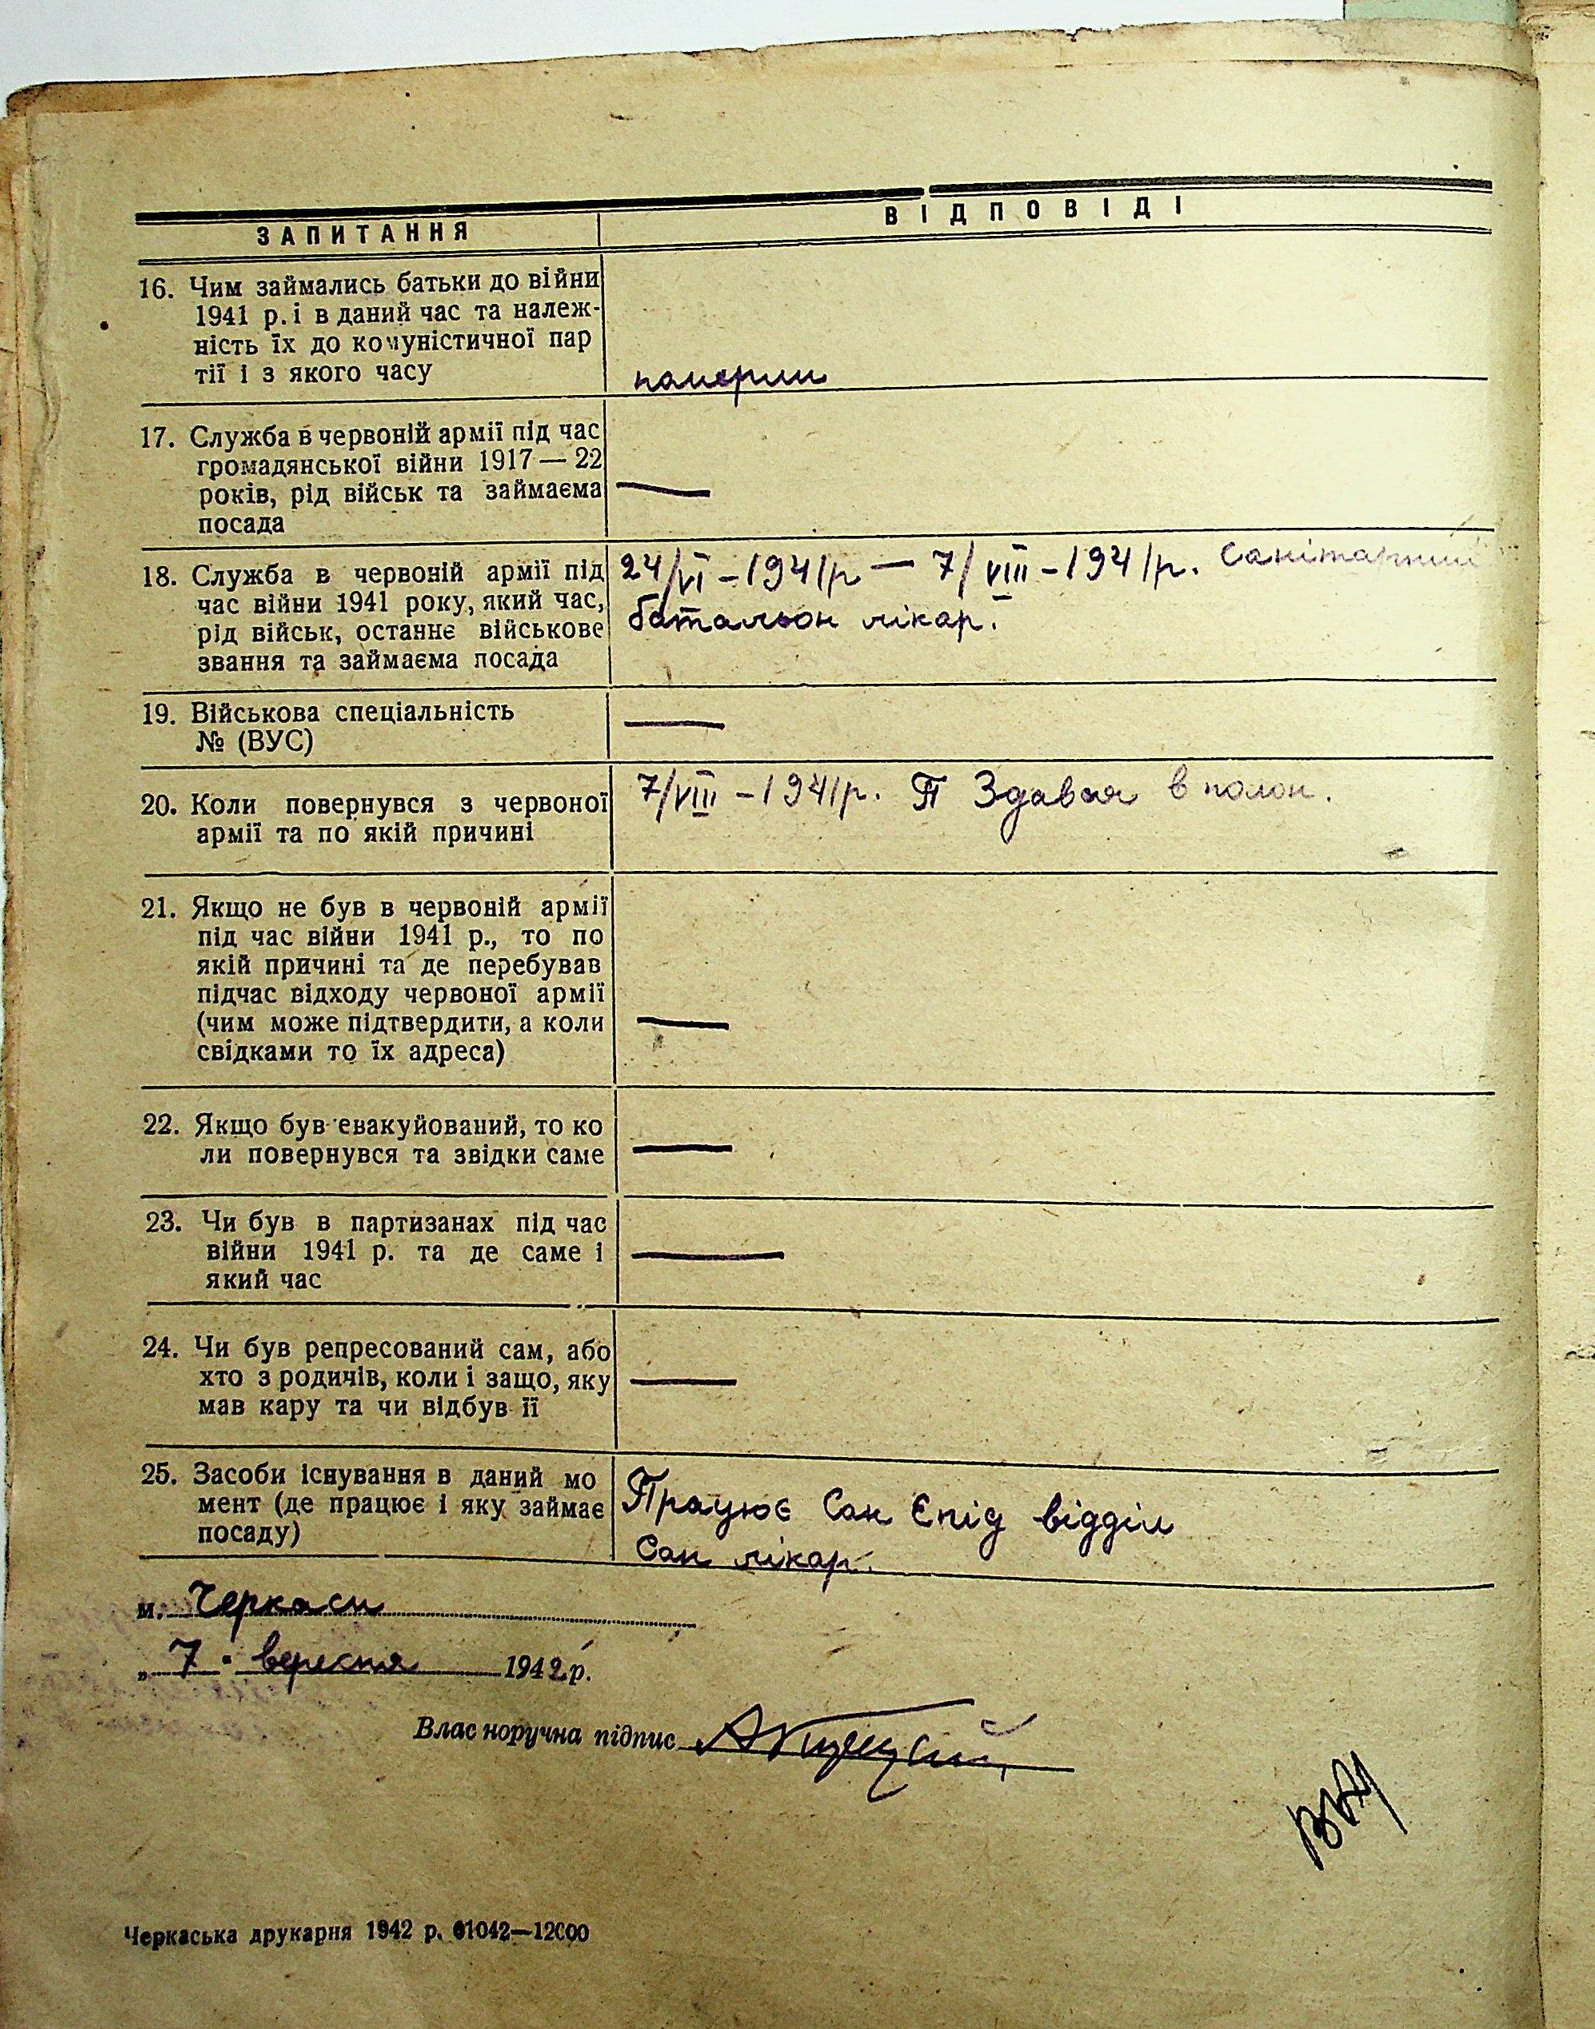 ЗАПИТАННЯ
ВІДПОВІДІ
16. Чим займались батьки до війни
1941 р. і в даний час та належ-
ність їх до комуністичної пар
тії і з якого часу
померли
17. Служба в червоній армії під час
громадянської війни 1917 — 22
років, рід військ та займаєма
посада
—
18. Служба в червоній армії під
час війни 1941 року, який час,
рід військ, останнє військове
звання та займаєма посада
24/VI - 1941р — 7/VIII - 1941р. санітарний
батальон лікар.
19. Військова спеціальність
№ (ВУС)
—
20. Коли повернувся з червоної
армії та по якій причині
7/VIII - 1941р. П Здався в полон.
21. Якщо не був в червоній армії
під час війни 1941 р., то по
якій причині та де перебував
підчас відходу червоної армії
(чим може підтвердити, а коли
свідками то їх адреса)
—
22. Якщо був евакуйований, то ко
ли повернувся та звідки саме
—
23. Чи був в партизанах під час
війни 1941 р. та де саме і
який час
—
24. Чи був репресований сам, або
хто з родичів, коли і защо, яку
мав кару та чи відбув її
—
25. Засоби існування в даний мо
мент (де працює і яку займає
посаду)
Працює Сан Епід відділ
Сан лікар.
м. Черкаси
„ 7 " вересня 1942 р.
Власноручна підпис
Черкаська друкарня 1942 р. 01042—12000